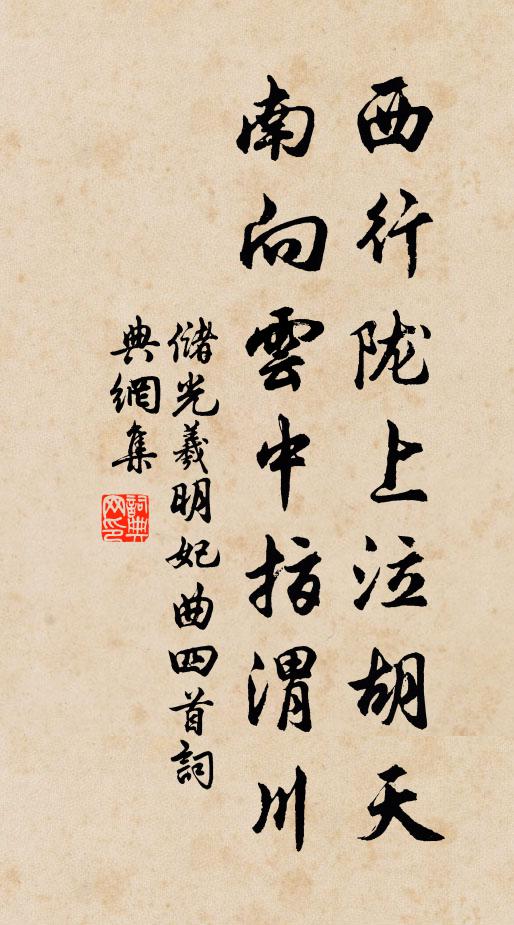 西行陇上泣胡天
南向雲中指渭川
儲光羲明妃曲四首詞
典網集
詞典
网印